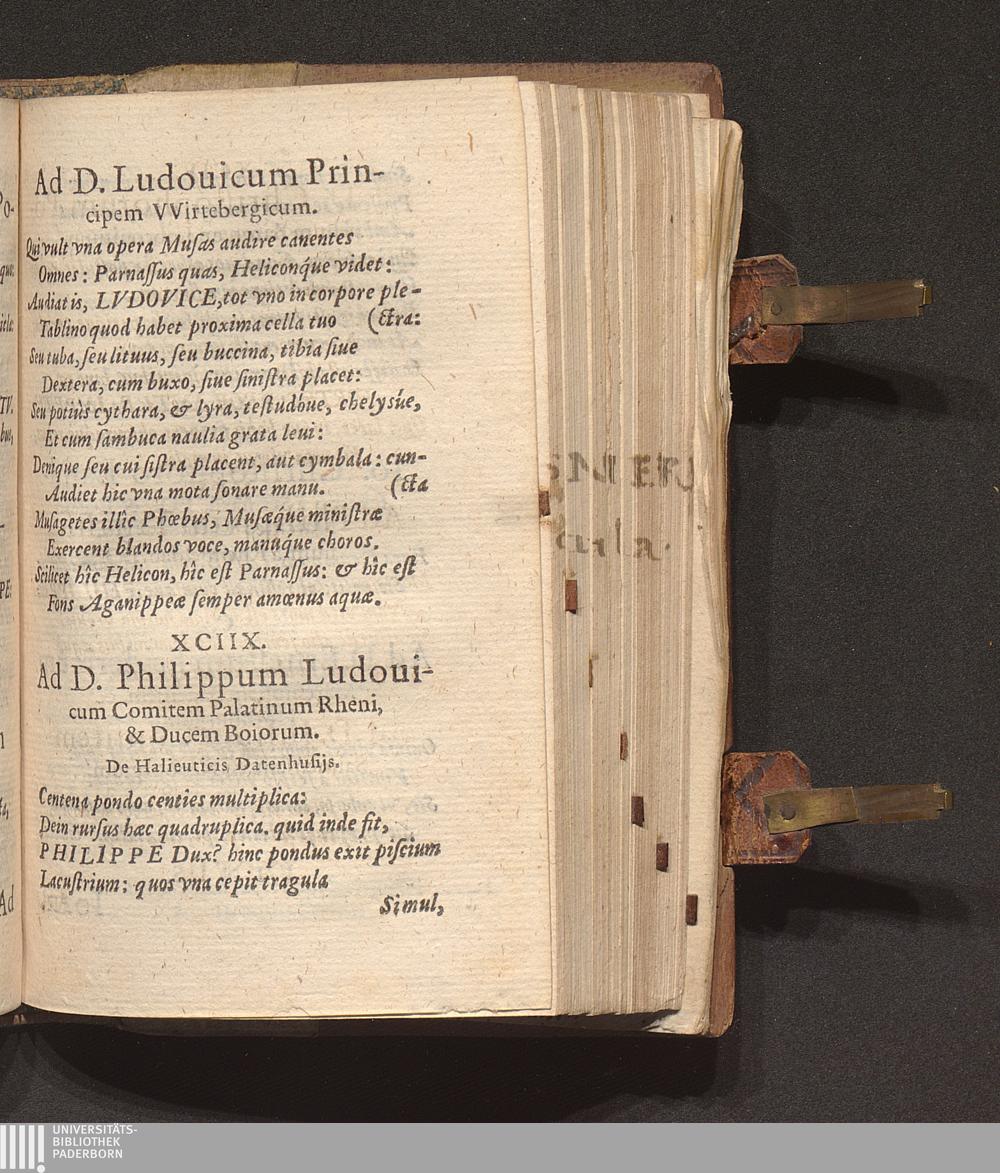 Ad D. Ludouicum Prin-
cipem VVirtebergicum.
Qui vult vna opera Muſas audire canentes
Omnes: Parnaſſus quas, Heliconq́ue videt:
Audiat is, LVDOVICE, tot vno in corpore ple-
Tablino quod habet proxima cella tuo (ctra:
Seu tuba, ſeu lituus, ſeu buccina, tibia ſiue
Dextera, cum buxo, ſiue ſiniſtra placet:
Seu potiùs cythara, & lyra, teſtudóue, chelysúe,
Et cum ſambuca naulia grata leui:
Denique ſeu cui ſiſtra placent, aut cymbala: cun-
Audiet hic vna mota ſonare manu. (cta
Muſagetes illîc Phœbus, Muſæq́ue miniſtræ
Exercent blandos voce, manuq́ue choros.
Scilicet hîc Helicon, hîc eſt Parnaſſus: & hîc eſt
Fons Aganippeæ ſemper amœnus aquæ.
XCIIX.
Ad D. Philippum Ludoui-
cum Comitem Palatinum Rheni,
& Ducem Boiorum.
De Halieuticis Datenhuſijs.
Centena pondo centies multiplica:
Dein rurſus hæc quadruplica. quid inde fit,
PHILIPPE Dux? hinc pondus exit piſcium
Lacuſtrium: quos vna cepit tragula
Simul,
UNIVERSITÄTS-
BIBLIOTHEK
PADERBORN